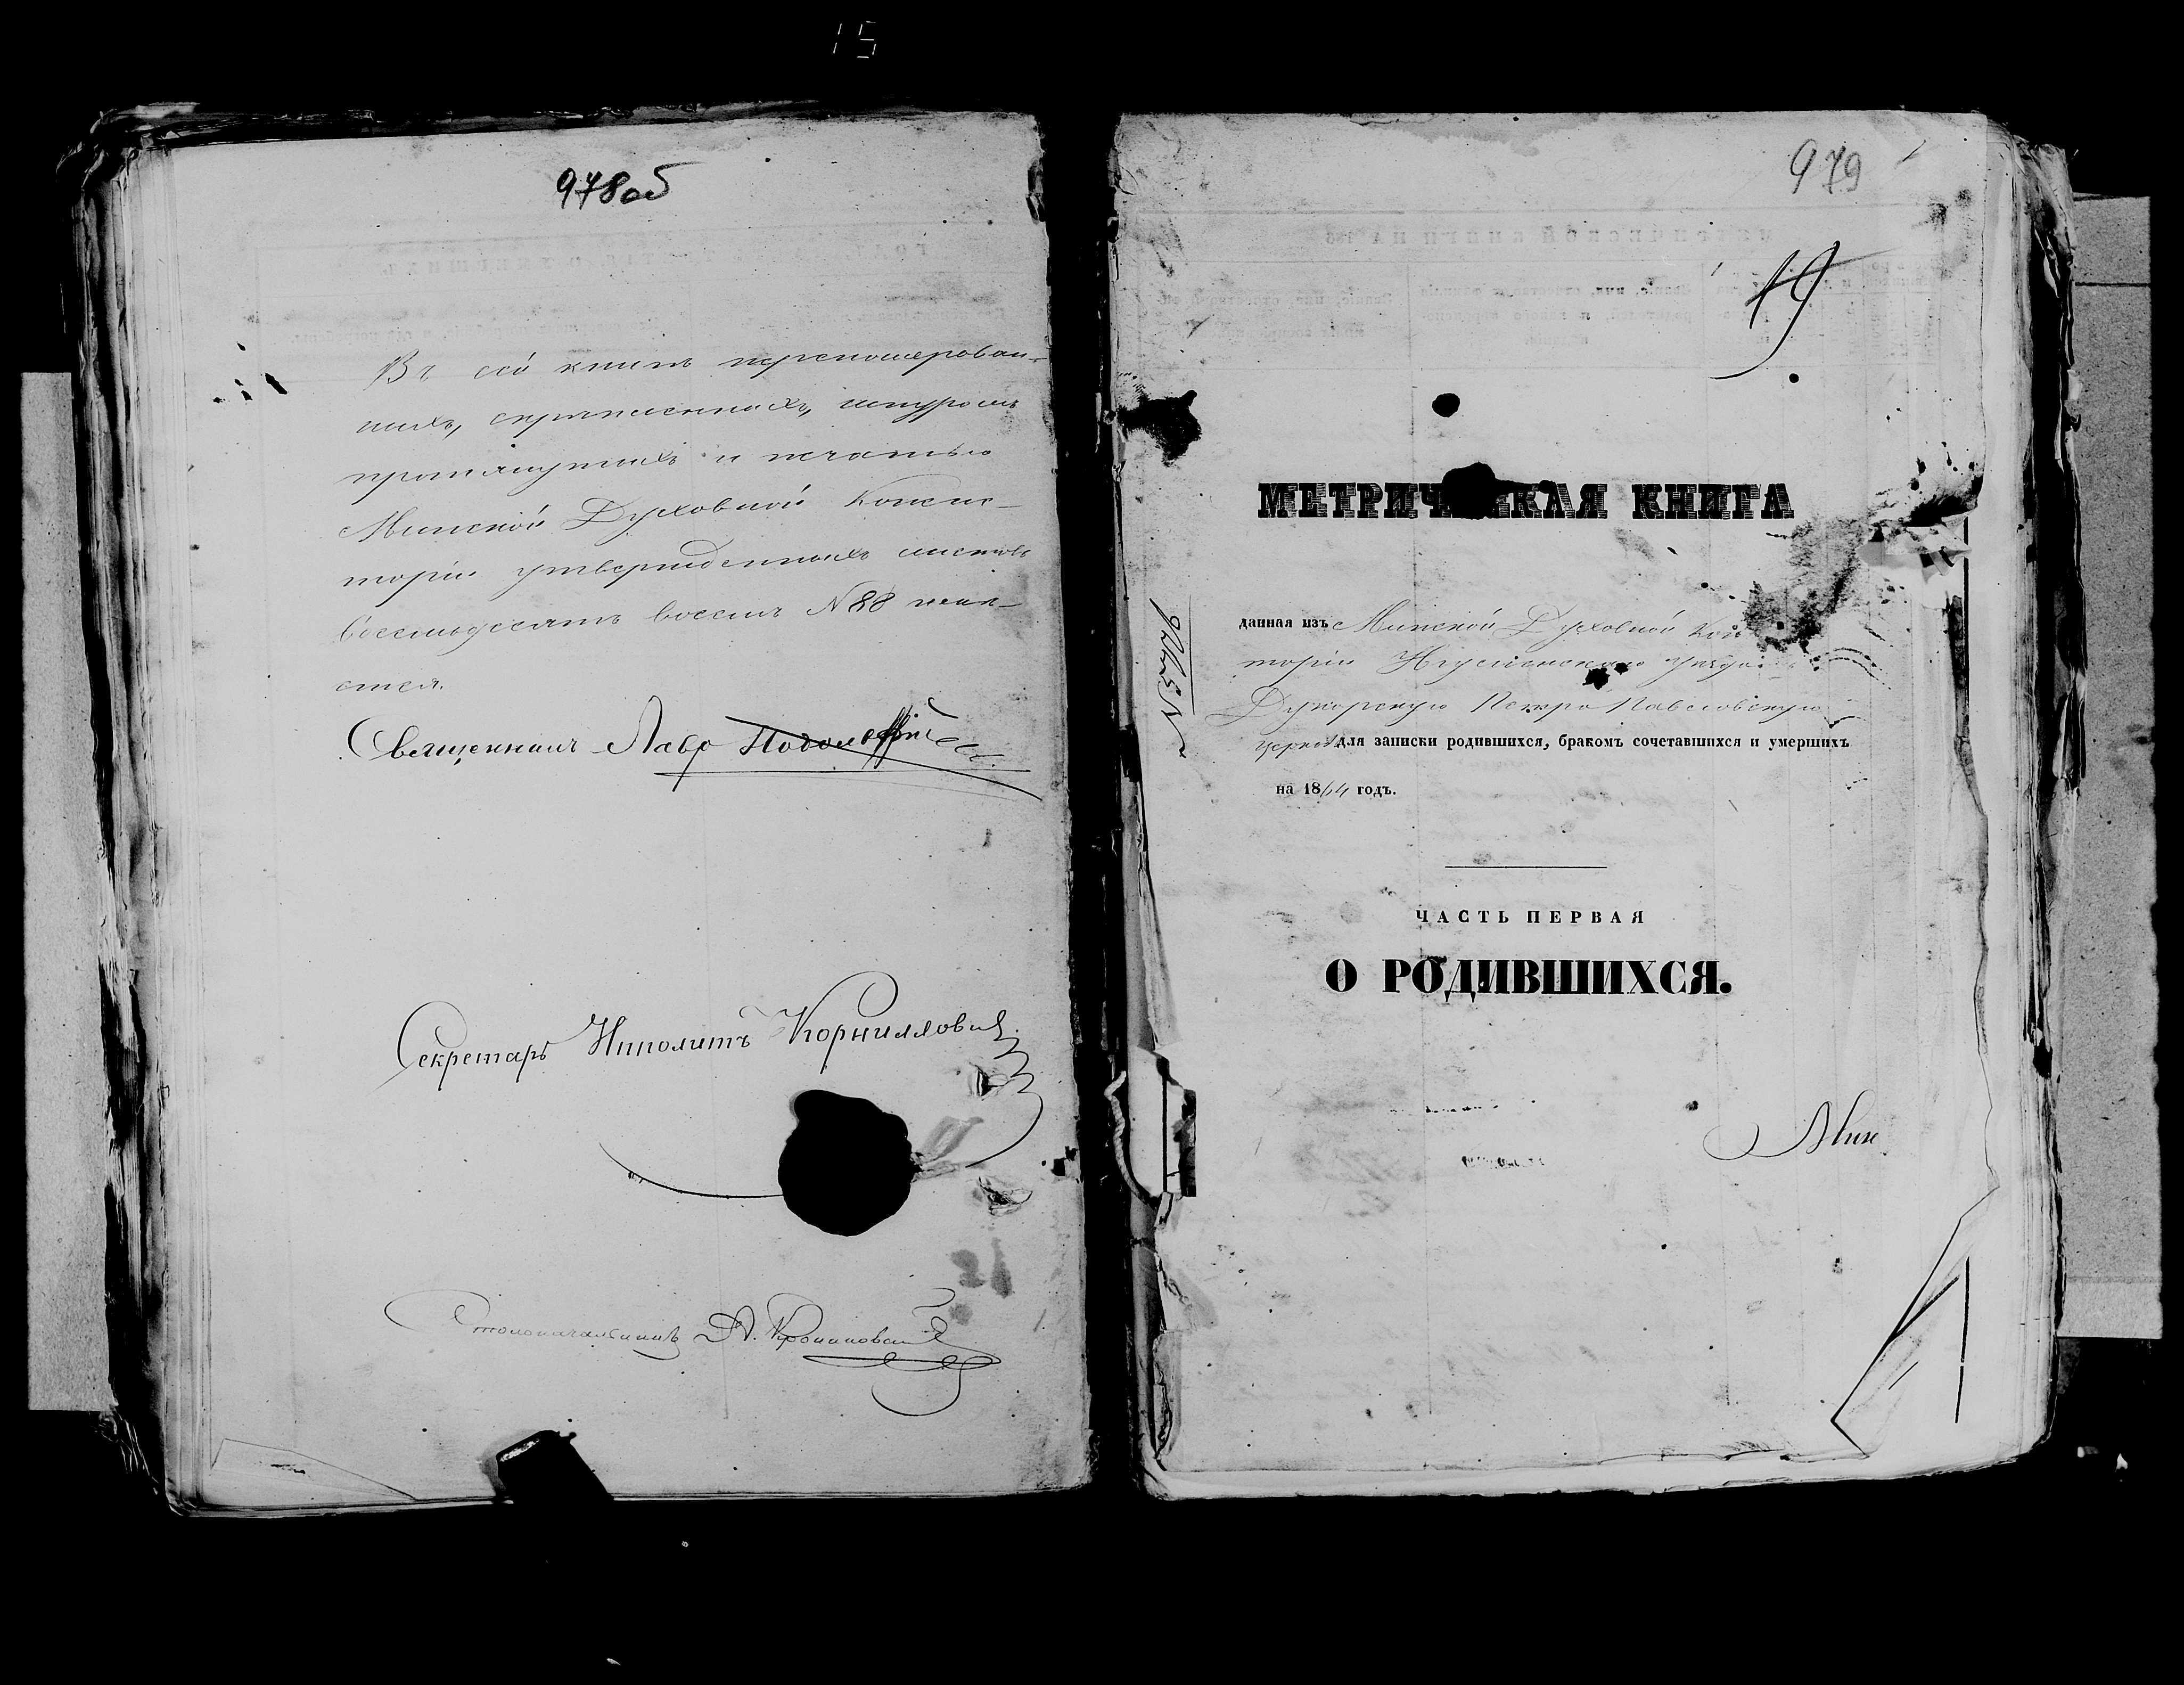 15
978об
Въ сей книгѣ перенумерован-
ныхъ, скрѣпленныхъ, шнуромъ
протянутыхъ и печатью
Минской Духовной Консис-
торіи утвержденныхъ листовъ
восемьдесятъ восемь №88 имѣ-
ется.
Священникъ Лавр
Секретарь Ипполитъ Корниловичъ
Столоначальникъ А.
979
19
МЕТРИЧ КАЯ КНИГА
данная изъ Минской Духовной Кон
торіи Игуменскаго уѣзда
Дукорскую Петро Павловскую
церковь для записки родившихся, бракомъ сочетавшихся и умершихъ
на 1864 годъ.
ЧАСТЬ ПЕРВАЯ
О РОДИВШИХСЯ.
Мин